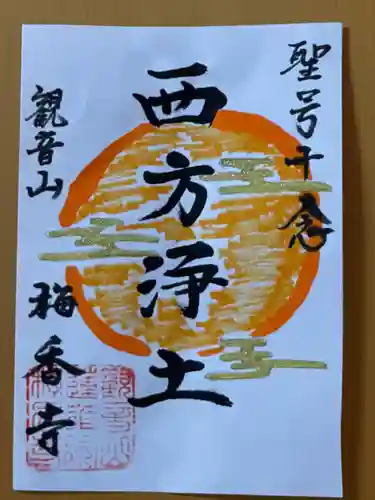 聖号十念
西方浄土
觀音山
梅香寺